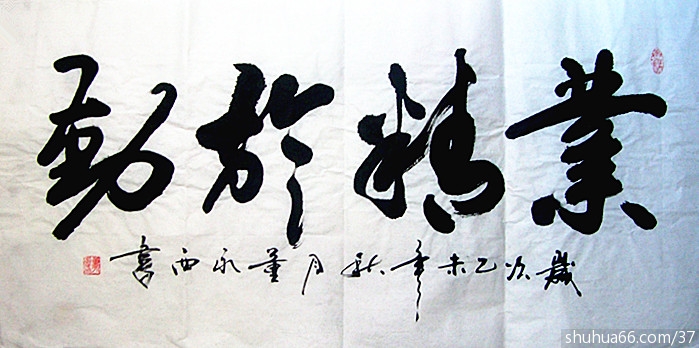 業精於勤
歲次乙未年秋月董永西書
shuhua66.com/37